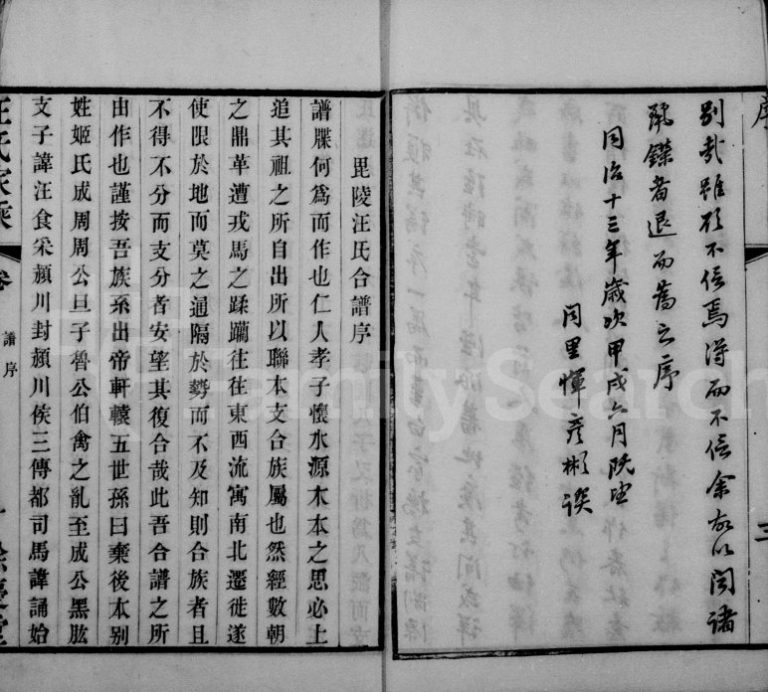 序
別哉雖欲不信焉得而不信余故以聞諸
鑠者退而為之序
同治十三年歲次甲戌六月既望
同里惲彥彬譔
三
毘陵汪氏合譜序
譜牒何爲而作也仁人孝子懷水源木本之思必上
追其祖之所自出所以聯本支合族屬也然經數朝
之鼎革遭戎馬之蹂躪往往東西流寓南北遷徙遂
使限於地而莫之通隔於勢而不及知則合族者且
不得不分而支分者安望其復合哉此吾合譜之所
由作也謹按吾族系出帝軒轅五世孫曰棄後本别
姓姬氏成周周公旦子魯公伯禽之亂至成公黑肱
支子諱汪食采潁川封潁川侯三傳都司馬諱誦始
汪氏家乘
卷
譜序
一
FamilySearch